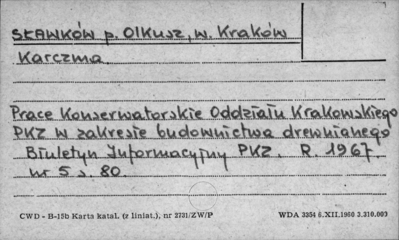 SŁAWKÓW p. Olkusz, w. Kraków
Karczma
Prace Konserwatorskie Oddziału Krakowskiego
PKZ w zakresie budownictwa drewnianego
Biuletyn Informacyjny PKZ. R. 1967.
nr 5 s. 80
CWD - B-15b Karta katal. (z liniat.), nr 2731/ZW/P WDA 3354 6.XII.1966 3.310.003